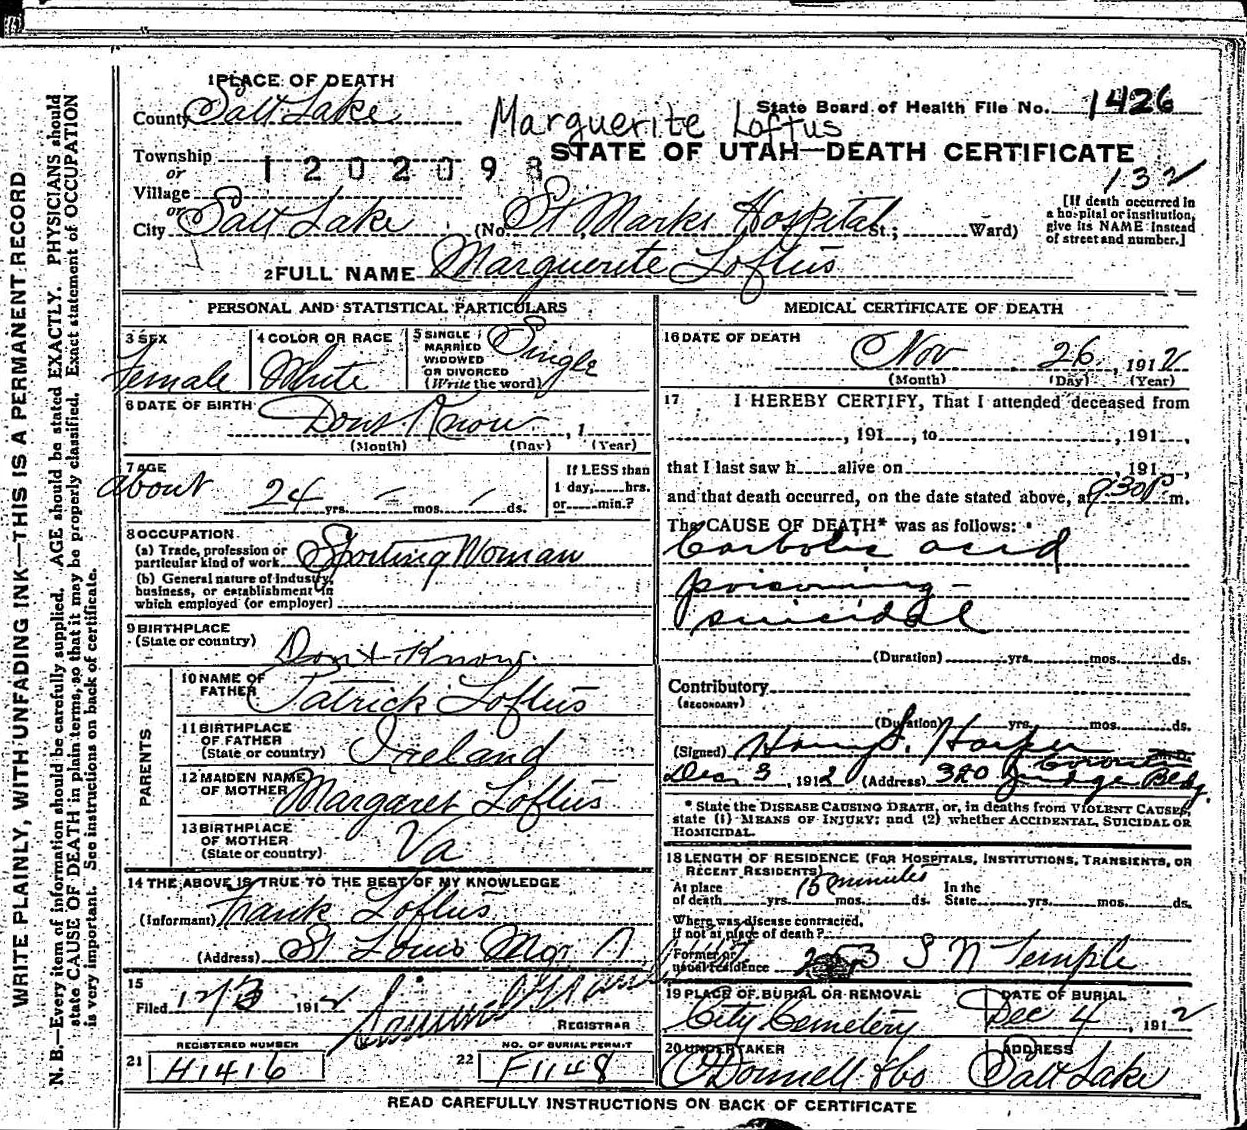 WRITE PLAINLY, WITH UNFADING INK—THIS IS A PERMANENT RECORD
N. B.—Every item of information should be carefully supplied. AGE should be stated EXACTLY. PHYSICIANS should
state CAUSE OF DEATH in plain terms, so that it may be properly classified. Exact statement of OCCUPATION
is very important. See instructions on back of certificate.
1 PLACE OF DEATH
County Salt Lake
State Board of Health File No. 1426
Marguerite Loftus
Township
or
1202098
STATE OF UTAH—DEATH CERTIFICATE
132
Village
or
City Salt Lake (No. St Marks Hospital St.; Ward)
[If death occurred in
a hospital or institution,
give its NAME instead
of street and number.]
2 FULL NAME Marguerite Loftus
PERSONAL AND STATISTICAL PARTICULARS
3 SEX
Female
4 COLOR OR RACE
White
5 SINGLE
MARRIED
WIDOWED
OR DIVORCED
(Write the word)
Single
6 DATE OF BIRTH
Dont Know , 1
(Month) (Day) (Year)
7 AGE
about 24 yrs. — mos. — ds.
If LESS than
1 day, hrs.
or min.?
8 OCCUPATION
(a) Trade, profession or
particular kind of work Sporting Woman
(b) General nature of industry,
business, or establishment in
which employed (or employer)
9 BIRTHPLACE
(State or country) Dont Know
PARENTS
10 NAME OF
FATHER Patrick Loftus
11 BIRTHPLACE
OF FATHER
(State or country) Ireland
12 MAIDEN NAME
OF MOTHER Margaret Loftus
13 BIRTHPLACE
OF MOTHER
(State or country) Va
14 THE ABOVE IS TRUE TO THE BEST OF MY KNOWLEDGE
(Informant) Frank Loftus
(Address) St Louis
15
Filed 12/3 1912
REGISTRAR
REGISTERED NUMBER
21 H1416
NO. OF BURIAL PERMIT
22 F1148
MEDICAL CERTIFICATE OF DEATH
16 DATE OF DEATH
Nov 26, 1912
(Month) (Day) (Year)
17 I HEREBY CERTIFY, That I attended deceased from
, 191 , to , 191 ,
that I last saw h alive on , 191 ,
and that death occurred, on the date stated above, at 9:30 P m.
The CAUSE OF DEATH* was as follows:
Carbolic acid
poisoning—
suicidal
(Duration) yrs. mos. ds.
Contributory
(SECONDARY)
(Duration) yrs. mos. ds.
(Signed) Harry S. Harper M.D.
Coroner
Dec 3, 1912 (Address) 320 Judge Bldg.
* State the DISEASE CAUSING DEATH, or, in deaths from VIOLENT CAUSES,
state (1) MEANS OF INJURY; and (2) whether ACCIDENTAL, SUICIDAL OR
HOMICIDAL.
18 LENGTH OF RESIDENCE (FOR HOSPITALS, INSTITUTIONS, TRANSIENTS, OR
RECENT RESIDENTS)
At place
of death yrs. mos. ds. 15 minutes
In the
State yrs. mos. ds.
Where was disease contracted,
if not at place of death?
Former or
usual residence S W Temple
19 PLACE OF BURIAL OR REMOVAL
City Cemetery
DATE OF BURIAL
Dec 4, 1912
20 UNDERTAKER
O'Donnell & Co
ADDRESS
Salt Lake
READ CAREFULLY INSTRUCTIONS ON BACK OF CERTIFICATE